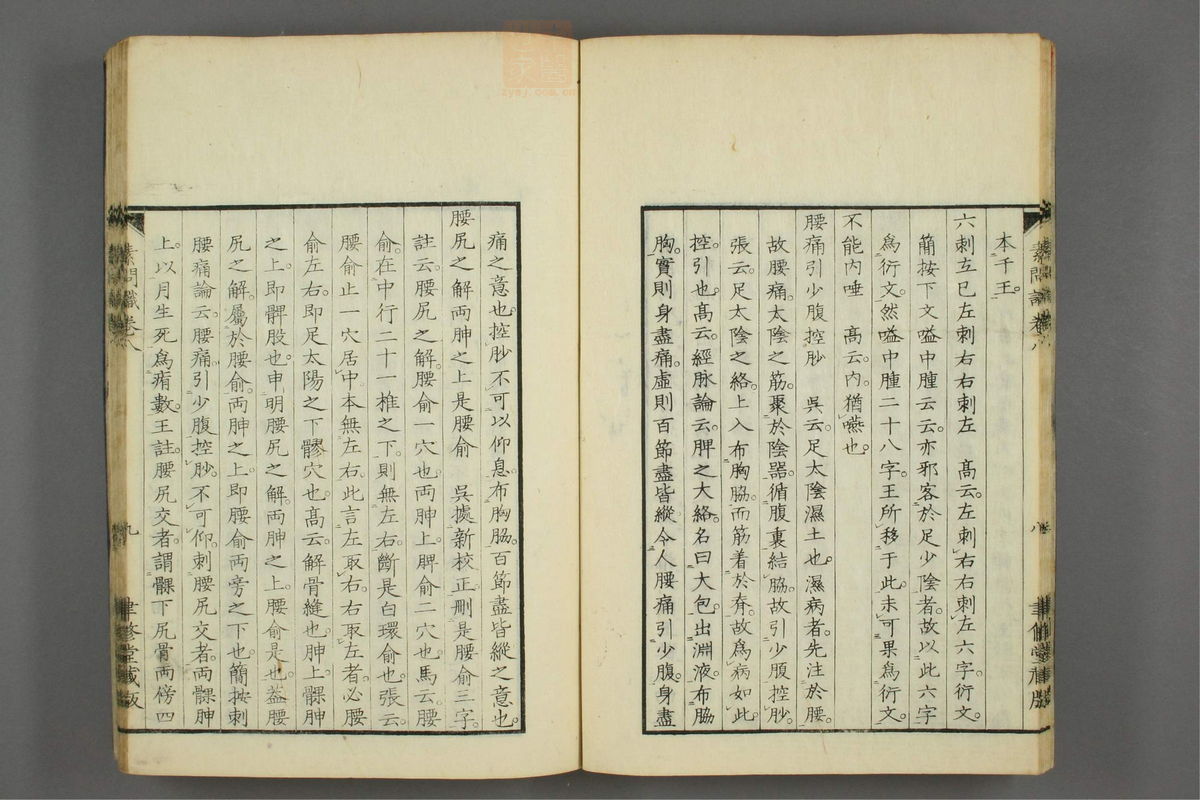 本于王。
六刺立已左刺右右刺左　高云。左刺右右刺左六字衍文。
簡按下文嗌中腫云云。亦邪客於足少陰者。故以此六字
爲衍文。然嗌中腫二十八字。王所移于此。未可果爲衍文。
不能内唾　高云。内。猶嚥也。
腰痛引少腹控䏚　吳云。足太陰濕土也。濕病者。先注於腰。
故腰痛。太陰之筋。聚於陰器。循腹裏結脇。故引少腹控䏚。
張云。足太陰之絡。上入布胸脇。而筋着於脊。故爲病如此。
控。引也。高云。經脉論云。脾之大絡。名曰大包。出淵液。布脇
胸。實則身盡痛。虛則百節盡皆縱。今人腰痛引少腹。身盡
痛之意也。控䏚不可以仰息。布胸脇。百節盡皆縱之意也。
腰尻之解兩胂之上是腰俞　吳據新校正。刪是腰俞三字。
註云。腰尻之解。腰俞一穴也。兩胂上。脾俞二穴也。馬云。腰
俞。在中行二十一椎之下。則無左右。斷是白環俞也。張云。
腰俞止一穴。居中本無左右。此言左取右。右取左者。必腰
俞左右。即足太陽之下髎穴也。高云。解骨縫也。胂上。髁胂
之上。即髀股也。申明腰尻之解。兩胂之上。腰俞是也。蓋腰
尻之解。屬於腰俞。兩胂之上。即腰俞兩旁之下也。簡按刺
腰痛論云。腰痛引少腹控䏚。不可仰。刺腰尻交者。兩髁胂
上。以月生死爲痏數。王註。腰尻交者。謂髁下尻骨兩傍四
素問識卷八
九
聿修堂藏版